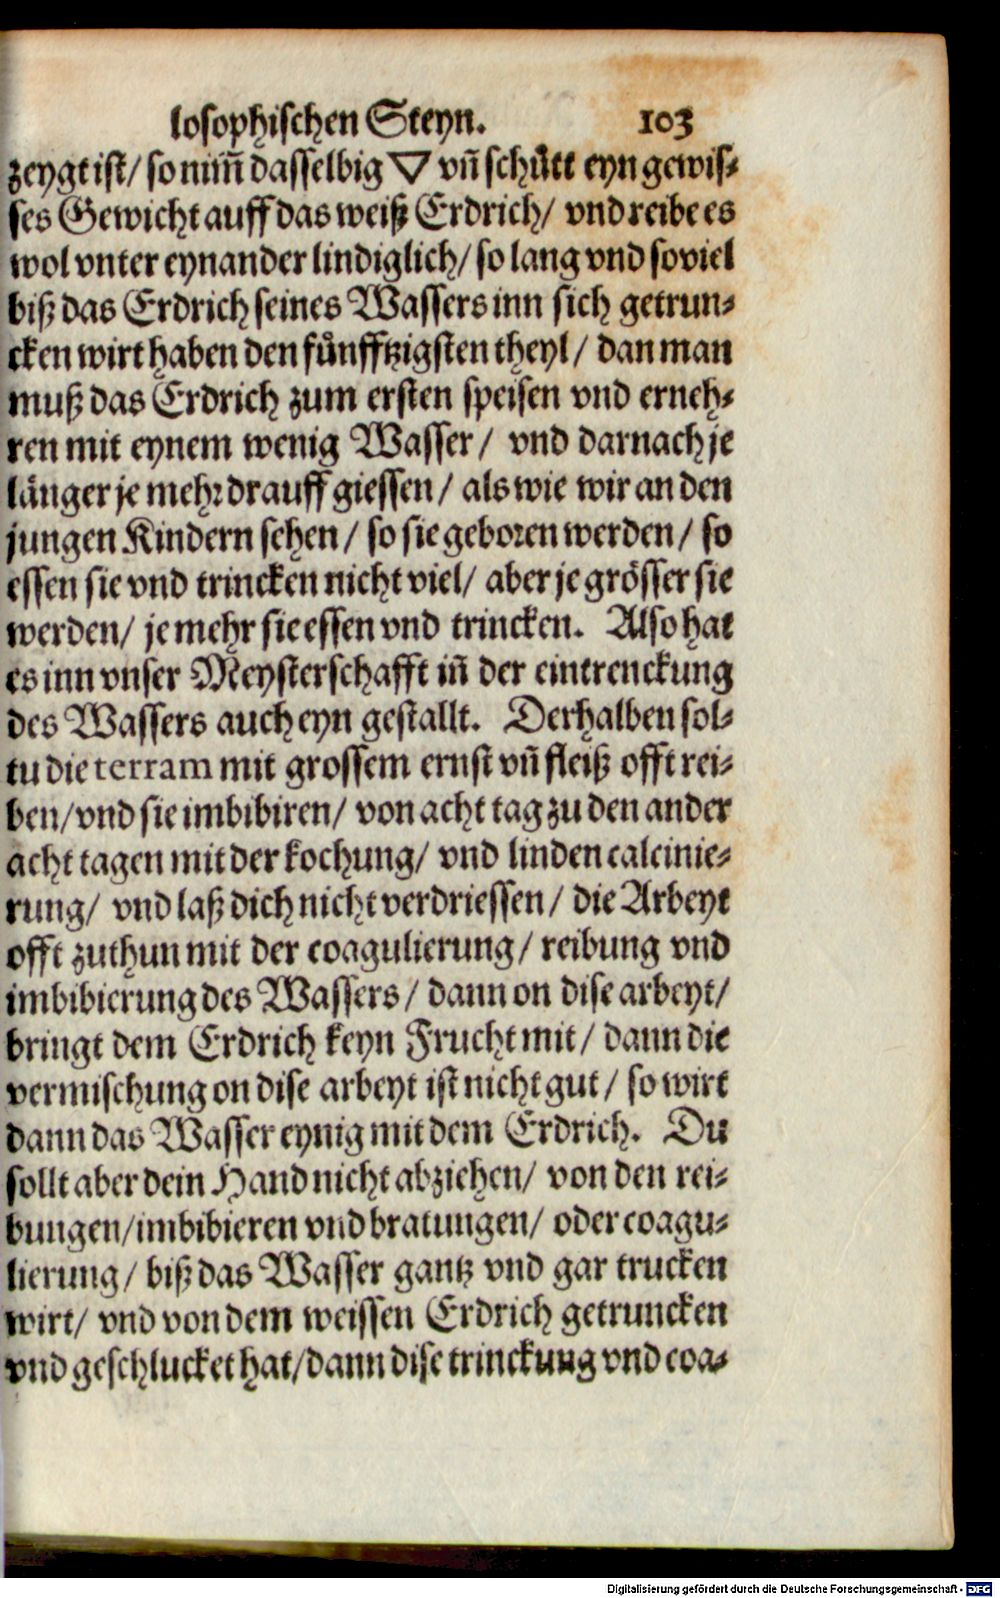 losophischen Steyn. 103
zeygt ist/ so nim̃ dasselbig ▽ vñ schütt eyn gewis-
ses Gewicht auff das weiß Erdrich/ vnd reibe es
wol vnter eynander lindiglich/ so lang vnd soviel
biß das Erdrich seines Wassers inn sich getrun-
cken wirt haben den fünfftzigsten theyl/ dan man
muß das Erdrich zum ersten speisen vnd erneh-
ren mit eynem wenig Wasser/ vnd darnach je
länger je mehr drauff giessen/ als wie wir an den
jungen Kindern sehen/ so sie geboren werden/ so
essen sie vnd trincken nicht viel/ aber je grösser sie
werden/ je mehr sie essen vnd trincken. Also hat
es inn vnser Meysterschafft iñ der eintrenckung
des Wassers auch eyn gestallt. Derhalben sol-
tu die terram mit grossem ernst vñ fleiß offt rei-
ben/ vnd sie imbibiren/ von acht tag zu den ander
acht tagen mit der kochung/ vnd linden calcinie-
rung/ vnd laß dich nicht verdriessen/ die Arbeyt
offt zuthun mit der coagulierung/ reibung vnd
imbibierung des Wassers/ dann on dise arbeyt/
bringt dem Erdrich keyn Frucht mit/ dann die
vermischung on dise arbeyt ist nicht gut/ so wirt
dann das Wasser eynig mit dem Erdrich. Du
sollt aber dein Hand nicht abziehen/ von den rei-
bungen/ imbibieren vnd bratungen/ oder coagu-
lierung/ biß das Wasser gantz vnd gar trucken
wirt/ vnd von dem weissen Erdrich getruncken
vnd geschlucket hat/ dann dise trinckung vnd coa-
Digitalisierung gefördert durch die Deutsche Forschungsgemeinschaft - DFG